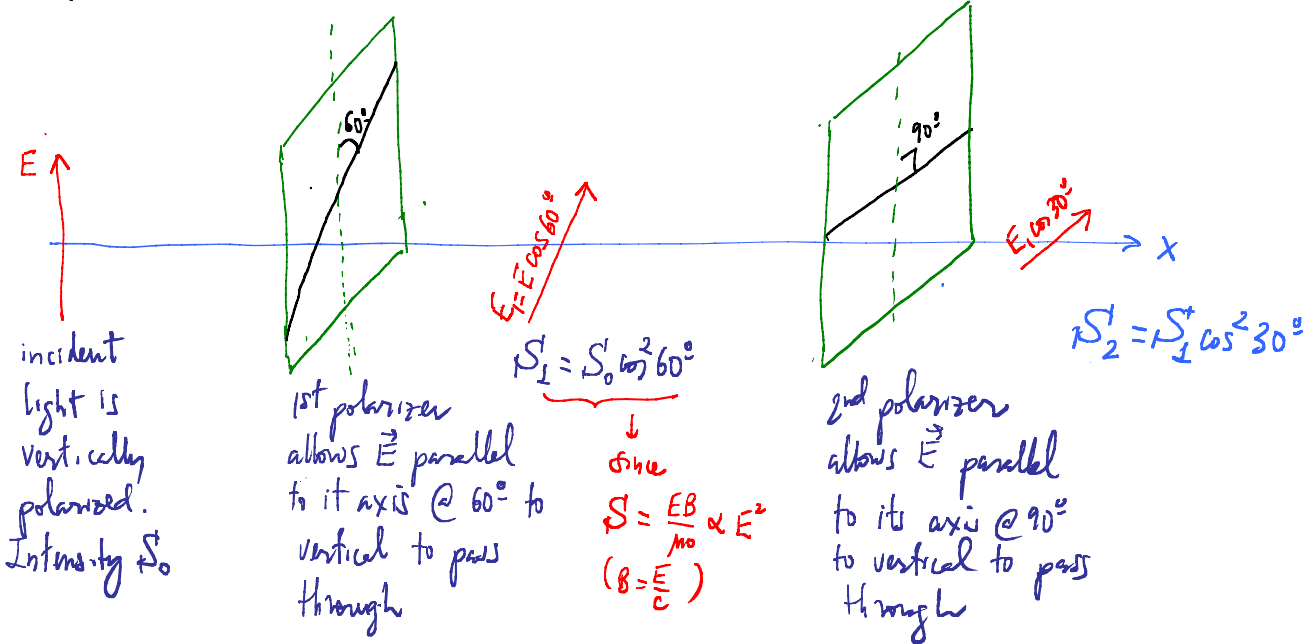 60º
90º
E
E₁ = E cos 60º
E₁ cos 30º
X
S₂ = S₁ cos² 30º
incident
light is
vertically
polarized.
Intensity S₀
1st polarizer
allows E⃗ parallel
to it axis @ 60º to
vertical to pass
through
S₁ = S₀ cos² 60º
since
S = EB/μ₀ ∝ E²
(B = E/c)
2nd polarizer
allows E⃗ parallel
to its axis @ 90º
to vertical to pass
through